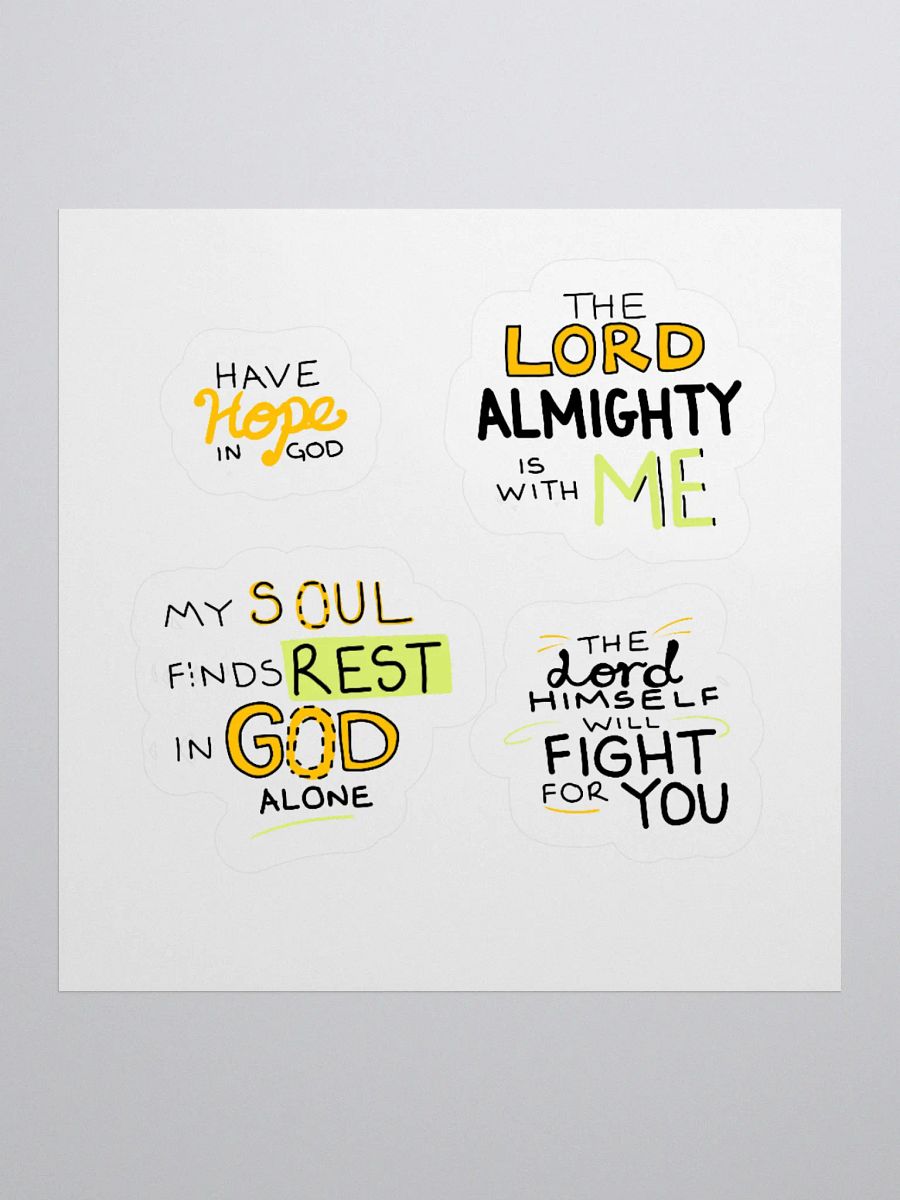 HAVE
Hope
IN GOD
THE
LORD
ALMIGHTY
IS
WITH ME
MY SOUL
FINDS REST
IN GOD
ALONE
THE
Lord
HIMSELF
WILL
FIGHT
FOR YOU